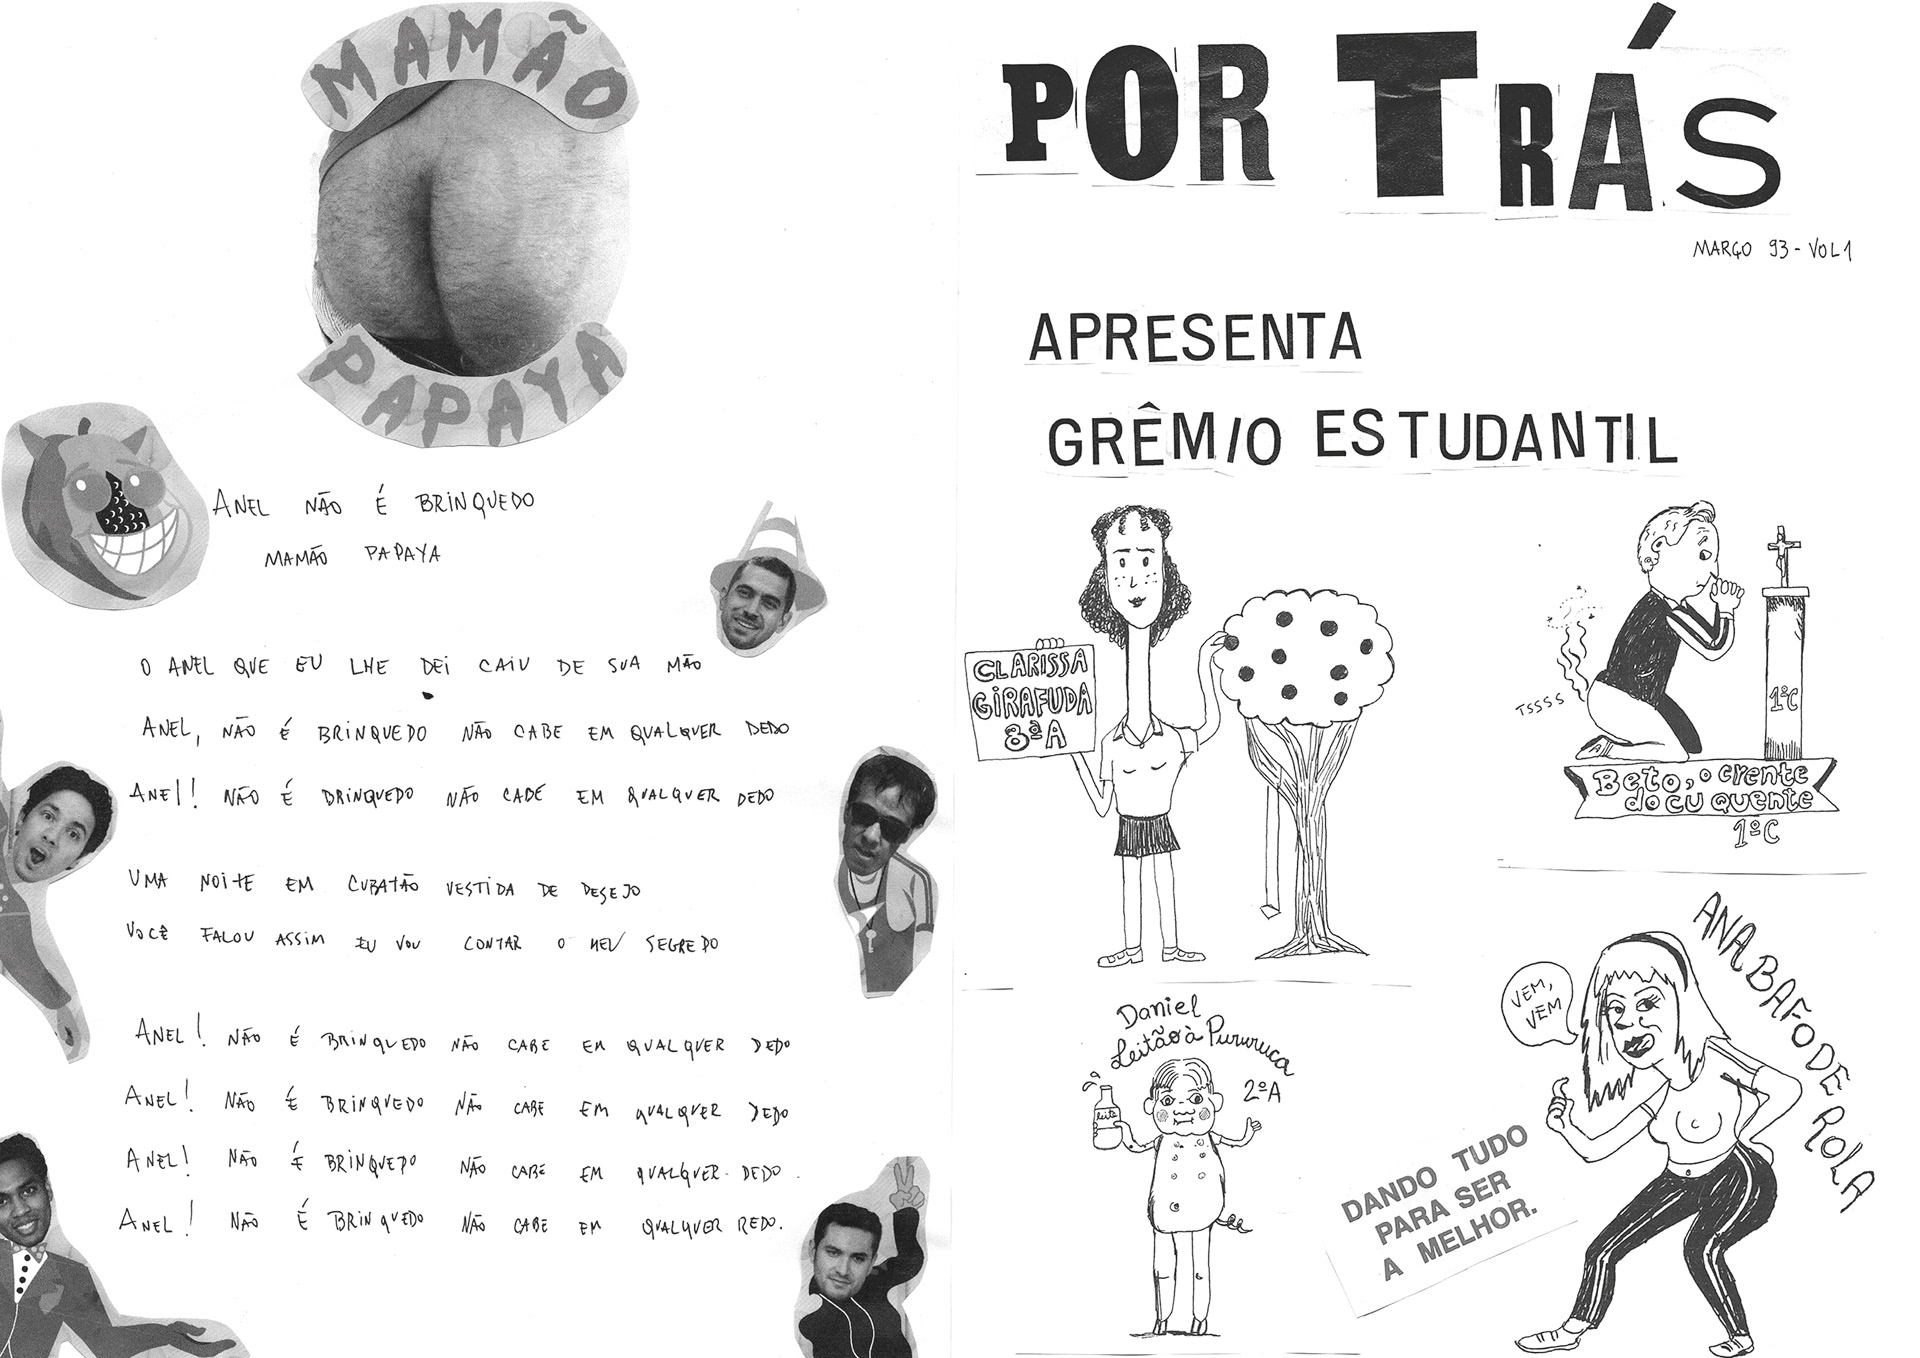 MAMÃO
PAPAYA
ANEL NÃO É BRINQUEDO
MAMÃO PAPAYA
O ANEL QUE EU LHE DEI CAIU DE SUA MÃO
ANEL, NÃO É BRINQUEDO NÃO CABE EM QUALQUER DEDO
ANEL! NÃO É BRINQUEDO NÃO CABE EM QUALQUER DEDO
UMA NOITE EM CUBATÃO VESTIDA DE DESEJO
VOCÊ FALOU ASSIM EU VOU CONTAR O MEU SEGREDO
ANEL! NÃO É BRINQUEDO NÃO CABE EM QUALQUER DEDO
ANEL! NÃO É BRINQUEDO NÃO CABE EM QUALQUER DEDO
ANEL! NÃO É BRINQUEDO NÃO CABE EM QUALQUER DEDO.
ANEL! NÃO É BRINQUEDO NÃO CABE EM QUALQUER REDO.
POR TRÁS
MARÇO 93 - VOL1
APRESENTA
GRÊMIO ESTUDANTIL
CLARISSA
GIRAFUDA
8ª A
TSSSS
1ºC
Beto, o crente
do cu quente
1ºC
Daniel
Leitão à Pururuca
2ºA
leite
ANA BAFO DE ROLA
VEM,
VEM
DANDO TUDO
PARA SER
A MELHOR.